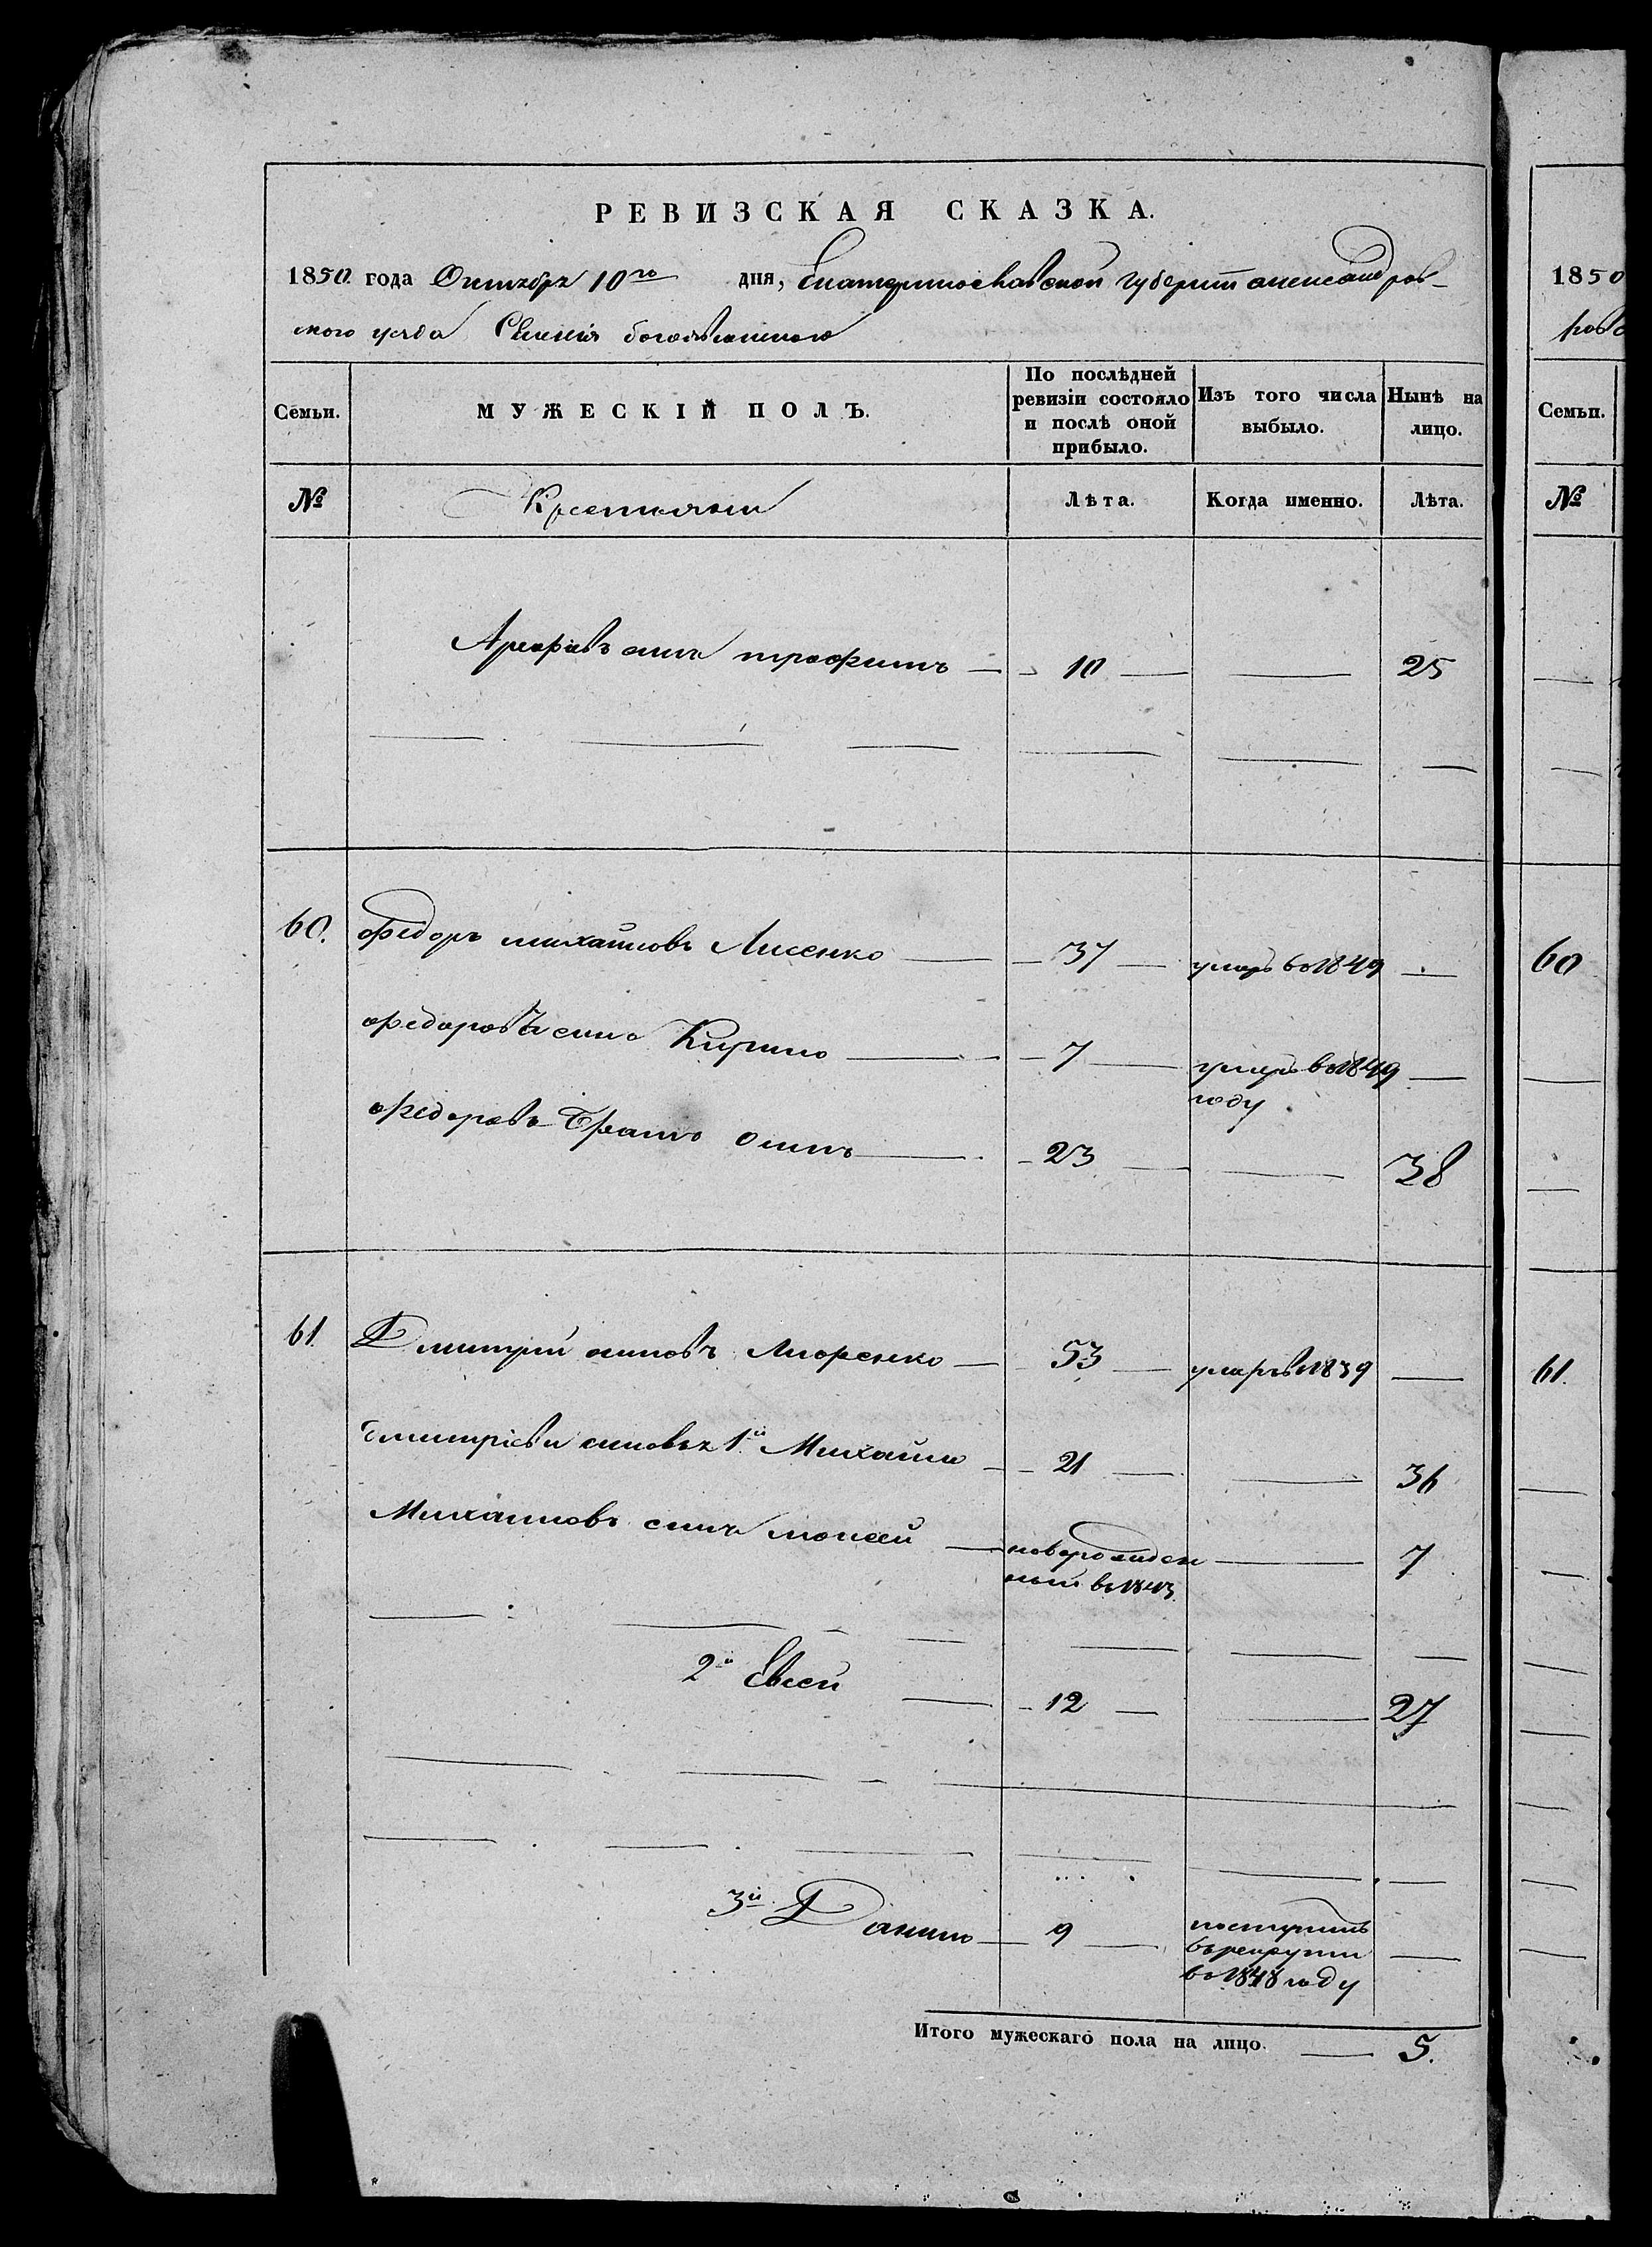 РЕВИЗСКАЯ СКАЗКА.
1850. года Октября 10го дня, Екатеринославской губернии александров-
ского уезда Селения богоявленского
Семьи.
МУЖЕСКІЙ ПОЛЪ.
По послѣдней ревизіи состояло и послѣ оной прибыло.
Изъ того числа выбыло.
Нынѣ на лицо.
№
Крестьяни
Лѣта.
Когда именно.
Лѣта.
сынъ трофимъ 10 25
60. Федоръ михайловъ Лисенко 37 умеръ в 1849
федоровъ синъ Кирило 7 умеръ в 1849
году
федоровъ братъ 23 38
61. Дмитрий осиповъ 53 умеръ в 1839
дмитріеви синовья 1й Михайло 21 36
Михайловъ синъ мойсей новорожден 7
ный в 1843
2й Евсей 12 27
3й Данило 9 поступилъ
въ рекрути
в 1848 году
Итого мужескаго пола на лицо. 5.
1850
ров
Семьи.
№
60
61.